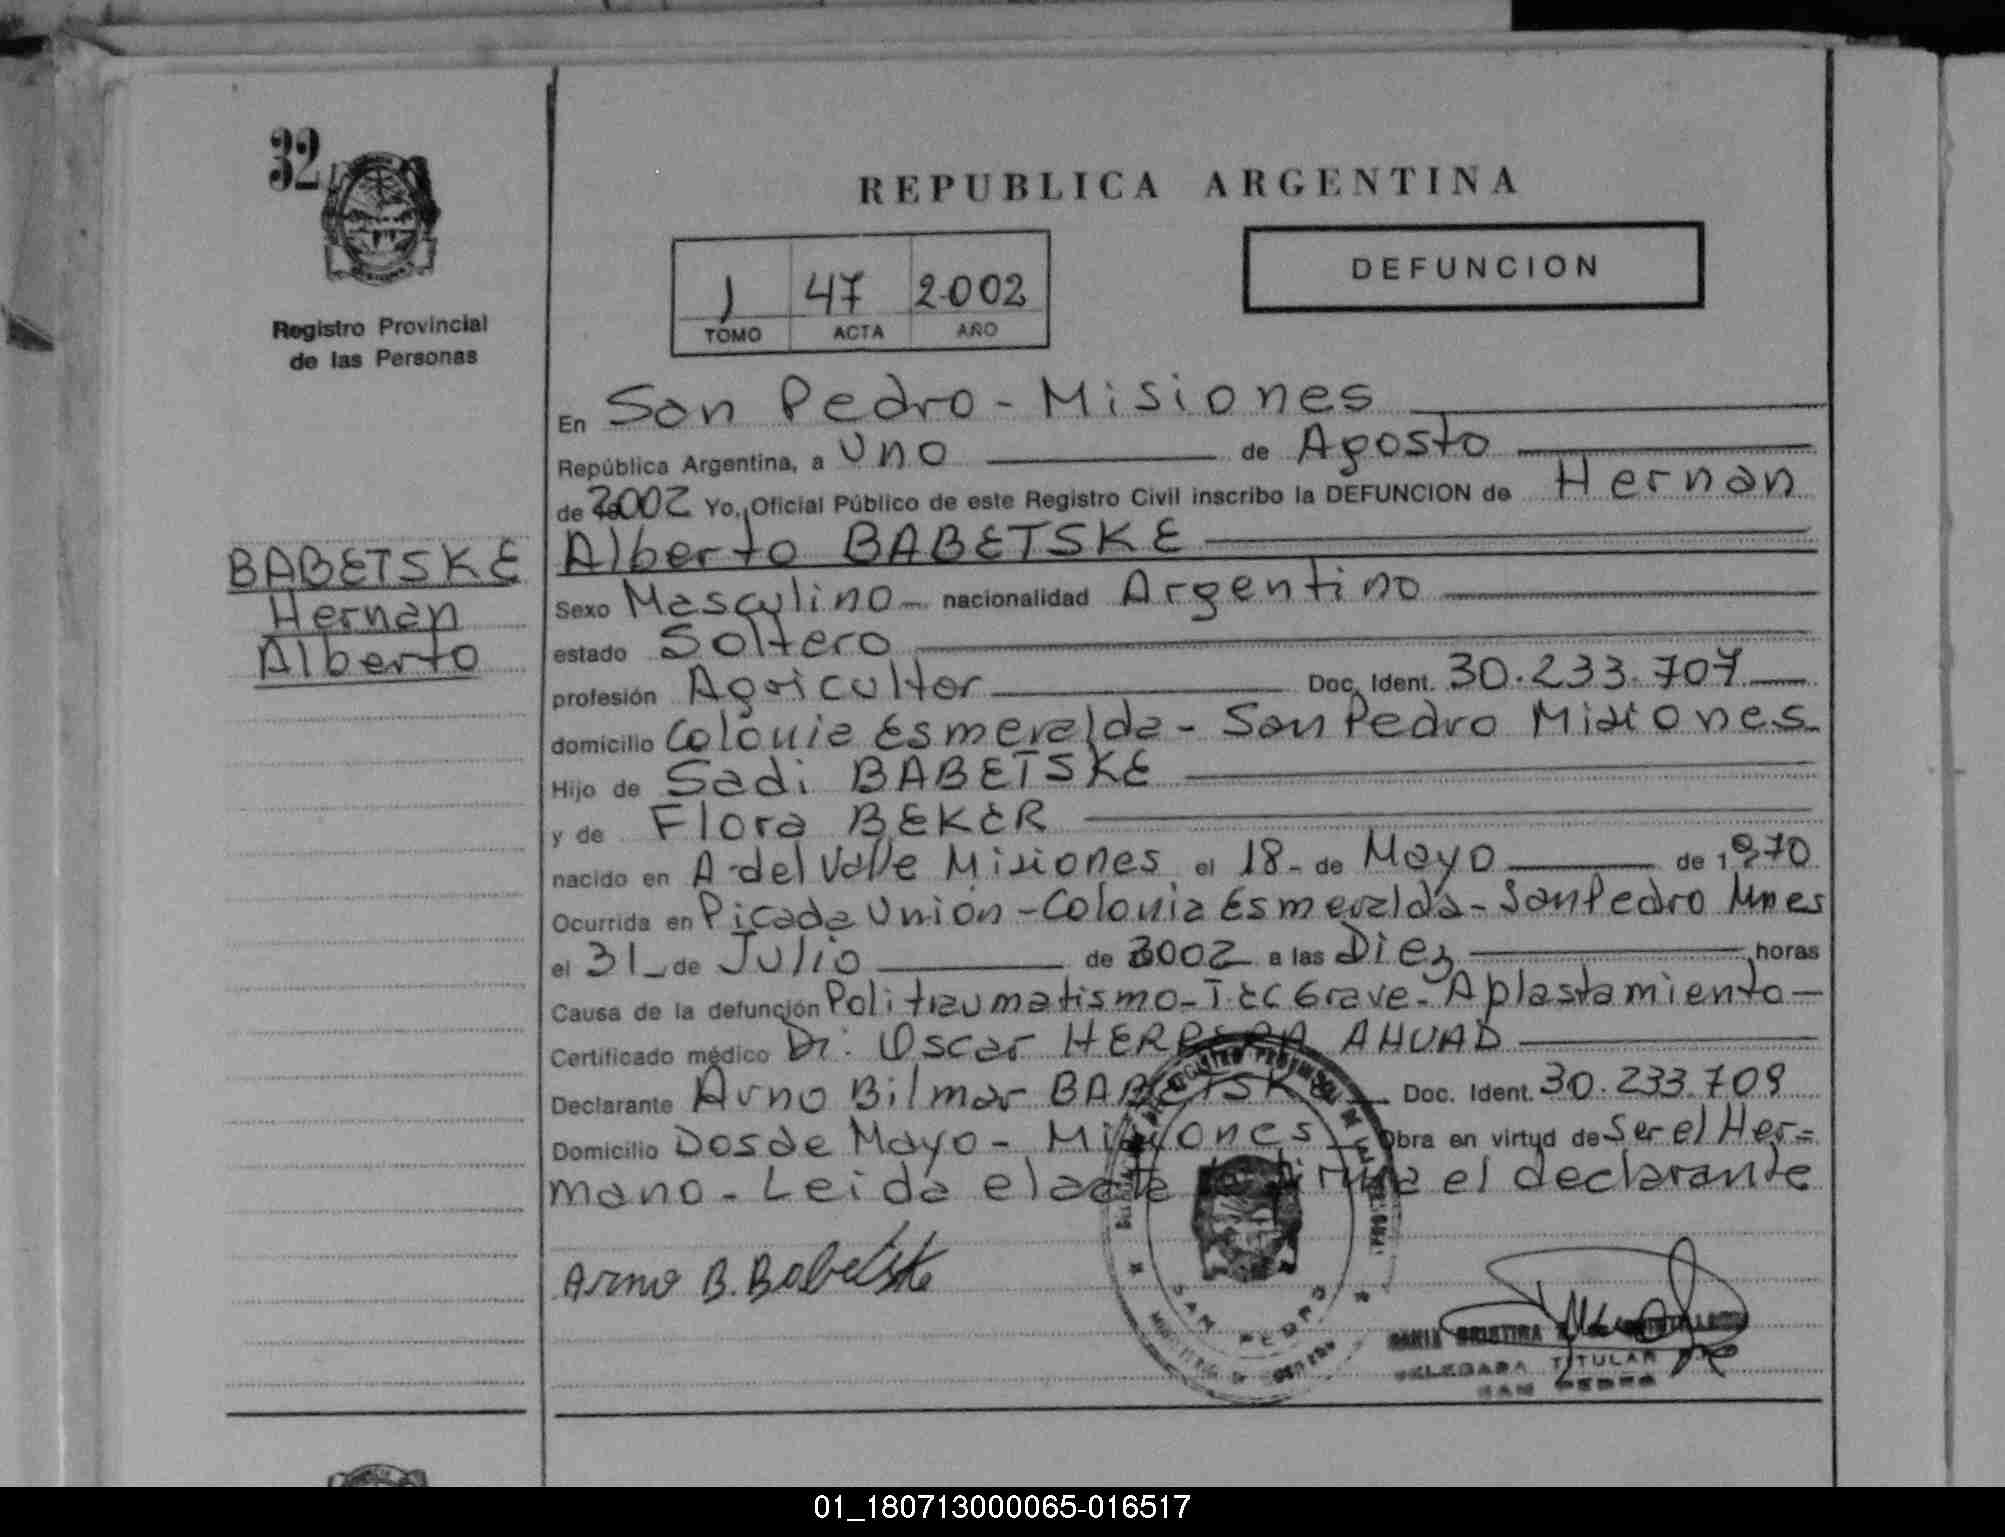 32
Registro Provincial
de las Personas
BABETSKE
Hernan
Alberto
REPUBLICA ARGENTINA
DEFUNCION
1 47 2002
TOMO ACTA AÑO
En San Pedro - Misiones
República Argentina, a Uno de Agosto
de 2002 Yo, Oficial Público de este Registro Civil inscribo la DEFUNCION de Hernan
Alberto BABETSKE
Sexo Masculino - nacionalidad Argentino
estado Soltero
profesión Agricultor Doc. Ident. 30.233.707
domicilio Colonia Esmeralda - San Pedro Misiones
Hijo de Sadi BABETSKE
y de Flora BEKER
nacido en A. del Valle Misiones el 18 - de Mayo de 1970
Ocurrida en Picada Unión - Colonia Esmeralda - San Pedro Mnes
el 31 - de Julio de 2002 a las Diez horas
Causa de la defunción Politraumatismo - T.E.C Grave - Aplastamiento -
Certificado médico Dr. Oscar HERRERA AHUAD
Declarante Arno Bilmar BABETSKE Doc. Ident. 30.233.709
Domicilio Dos de Mayo - Misiones Obra en virtud de Ser el Her=
mano - Leida el acta la firma el declarante
Arno B. Babetske
SAN PEDRO
DELEGADA TITULAR
SAN PEDRO
01_180713000065-016517